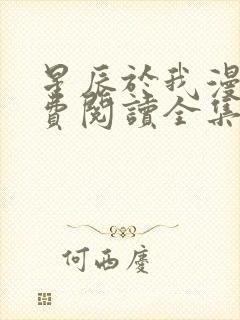 星辰於我漫
費閱讀全集
何西慶